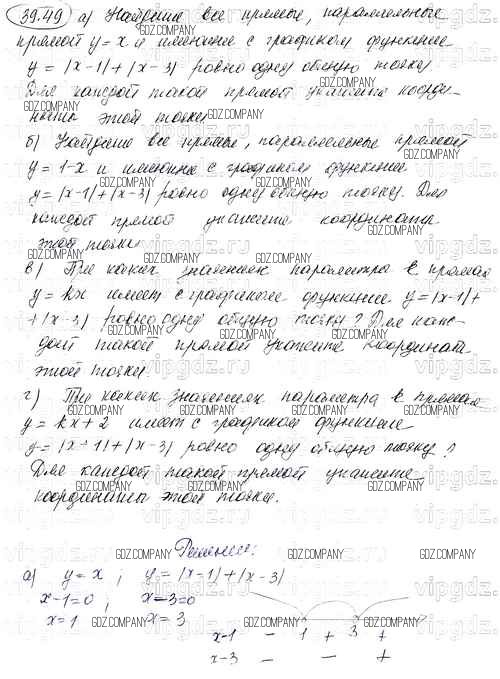 39.49 а) Найдите все прямые, параллельные
прямой y = x и имеющие с графиком функции
y = |x-1| + |x-3| ровно одну общую точку
Для каждой такой прямой укажите коорди-
наты этой точки
б) Найдите все прямые, параллельные прямой
y = 1-x и имеющие с графиком функции
y = |x-1| + |x-3| ровно одну общую точку. Для
каждой прямой укажите координаты
этой точки
в) При каких значениях параметра k прямая
y = kx имеет с графиком функции y = |x-1| +
+ |x-3| ровно одну общую точку? Для каж-
дой такой прямой укажите координат.
этой точки.
г) При каких значениях параметра k прямая
y = kx + 2 имеет с графиком функции
y = |x-1| + |x-3| ровно одну общую точку?
Для каждой такой прямой укажите
координаты этой точки.
Решение:
а) y = x ; y = |x-1| + |x-3|
x-1=0 ; x-3=0
x=1 x=3
1 3
x-1 - + +
x-3 - - +
GDZ.COMPANY
vipgdz.ru